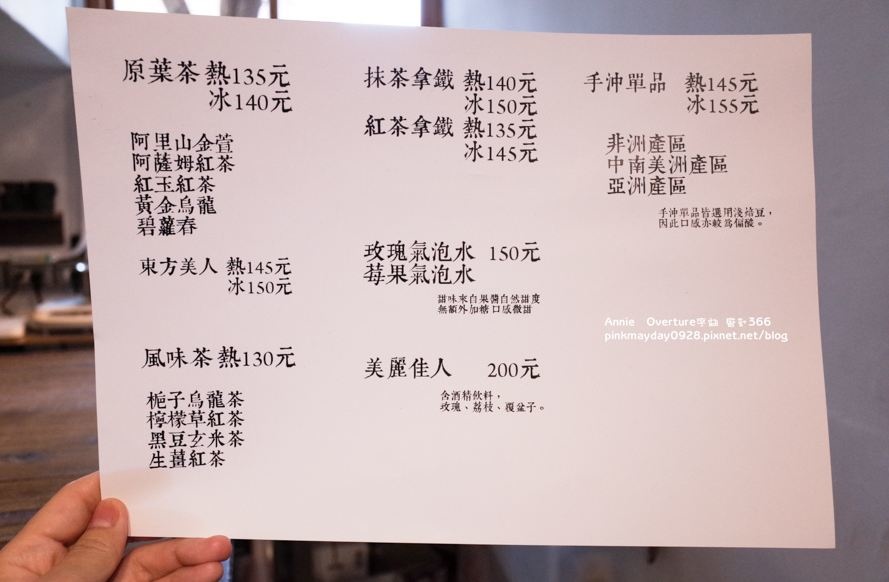 原葉茶 熱135元
冰140元
阿里山金萱
阿薩姆紅茶
紅玉紅茶
黃金烏龍
碧蘿春
東方美人 熱145元
冰150元
風味茶 熱130元
梔子烏龍茶
檸檬草紅茶
黑豆玄米茶
生薑紅茶
抹茶拿鐵 熱140元
冰150元
紅茶拿鐵 熱135元
冰145元
玫瑰氣泡水 150元
莓果氣泡水
甜味來自果醬自然甜度
無額外加糖口感微甜
美麗佳人 200元
含酒精飲料，
玫瑰、荔枝、覆盆子。
手沖單品 熱145元
冰155元
非洲產區
中南美洲產區
亞洲產區
手沖單品皆選用淺焙豆，
因此口感亦較為偏酸。
Annie Overture序曲 窩對366
pinkmayday0928.pixnet.net/blog